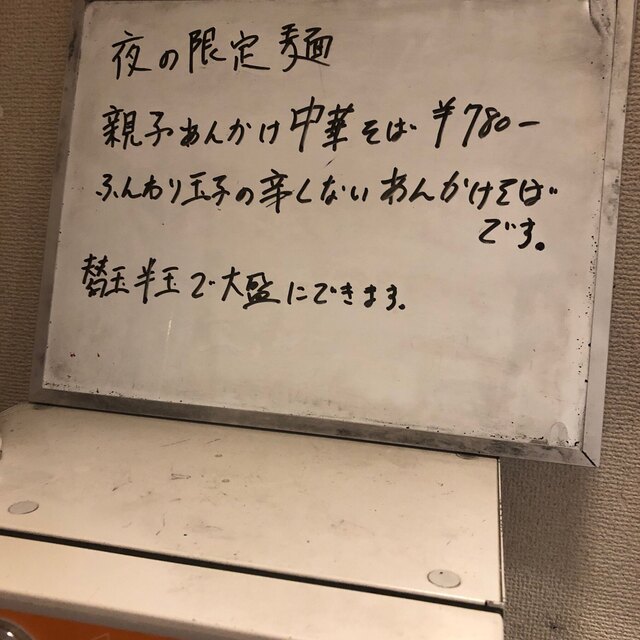 夜の限定麺
親子あんかけ中華そば ¥780-
ふんわり玉子の辛くないあんかけそば
です。
替玉半玉で大盛にできます。